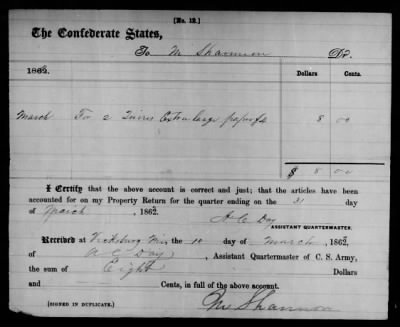 [No. 12.]
The Confederate States,
To M Shannon Dr.
1862. Dollars Cents.
March To 2 Quires Extra large paper 8 00
$ 8 00
I Certify that the above account is correct and just; that the articles have been
accounted for on my Property Return for the quarter ending on the 31 day
of March, 1862 A C Day
ASSISTANT QUARTERMASTER.
Received at Vicksburg Miss the 10 day of March, 1862,
of A C Day, Assistant Quartermaster of C. S. Army,
the sum of Eight Dollars
and Cents, in full of the above account.
(SIGNED IN DUPLICATE.) M Shannon